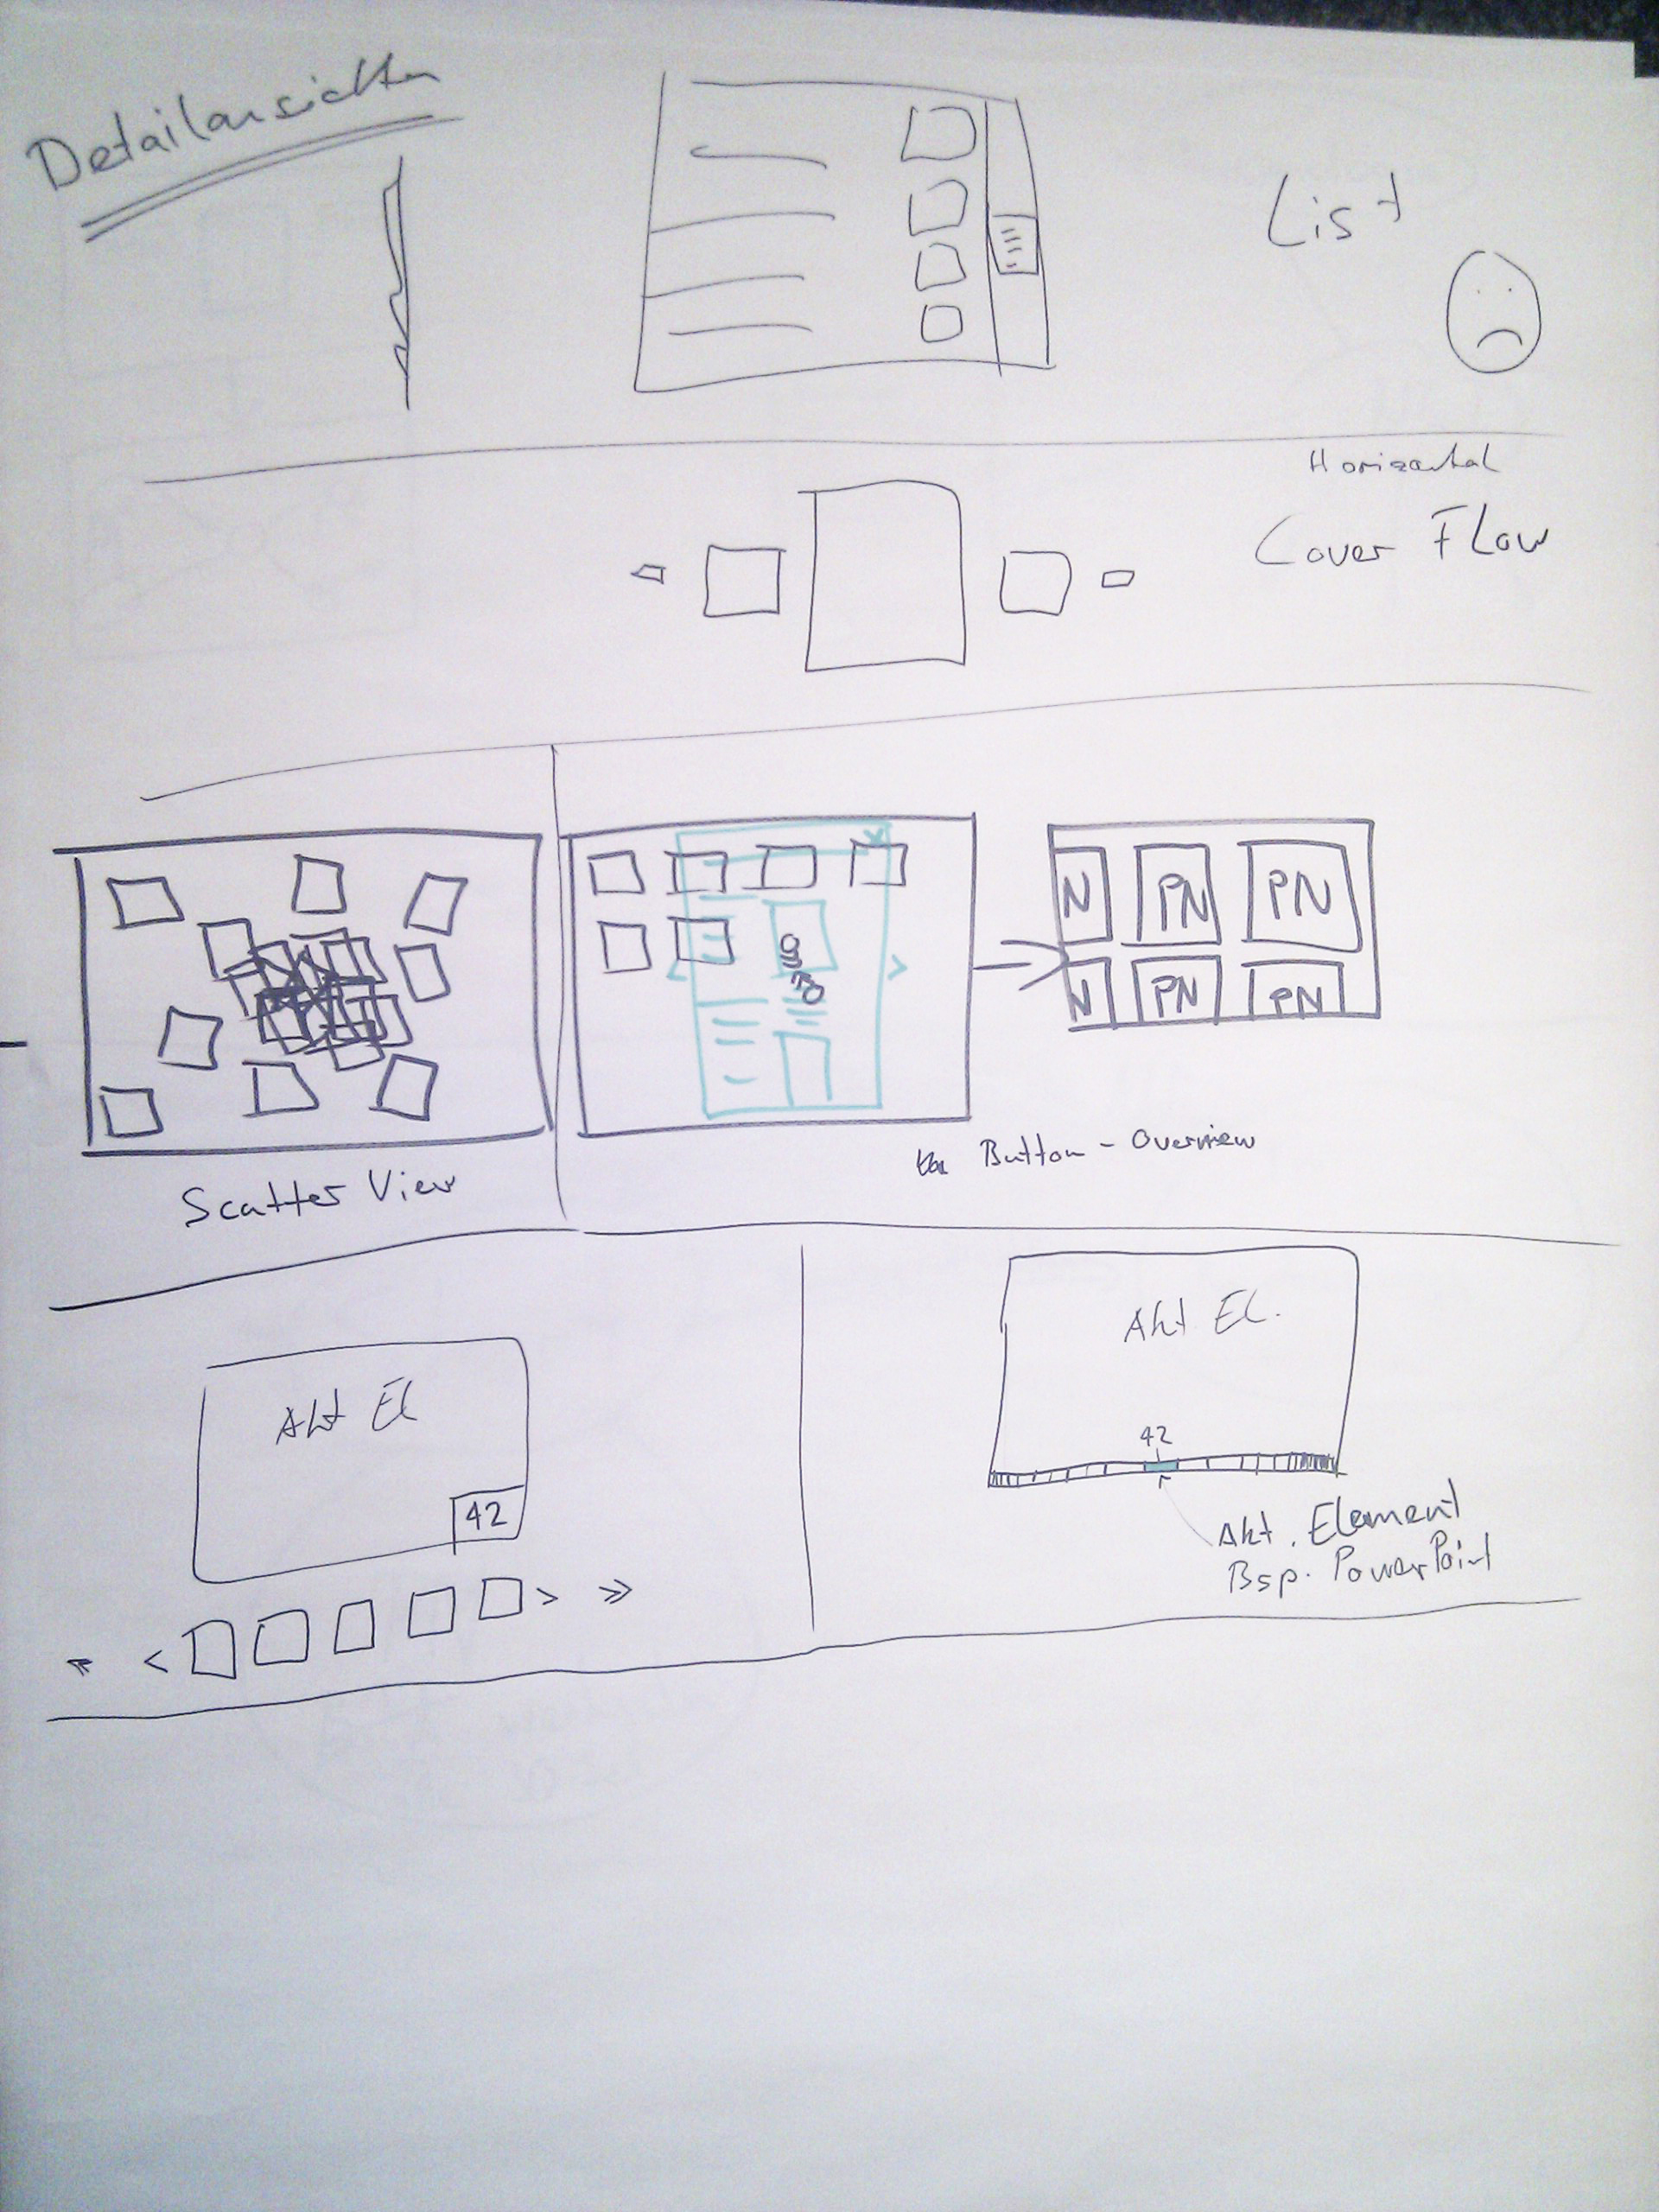 Detailansichten
List
Horizontal
Cover Flow
N PN PN
N PN PN
Button - Overview
Scatter View
Akt El
42
Akt El.
42
Akt. Element
Bsp. PowerPoint